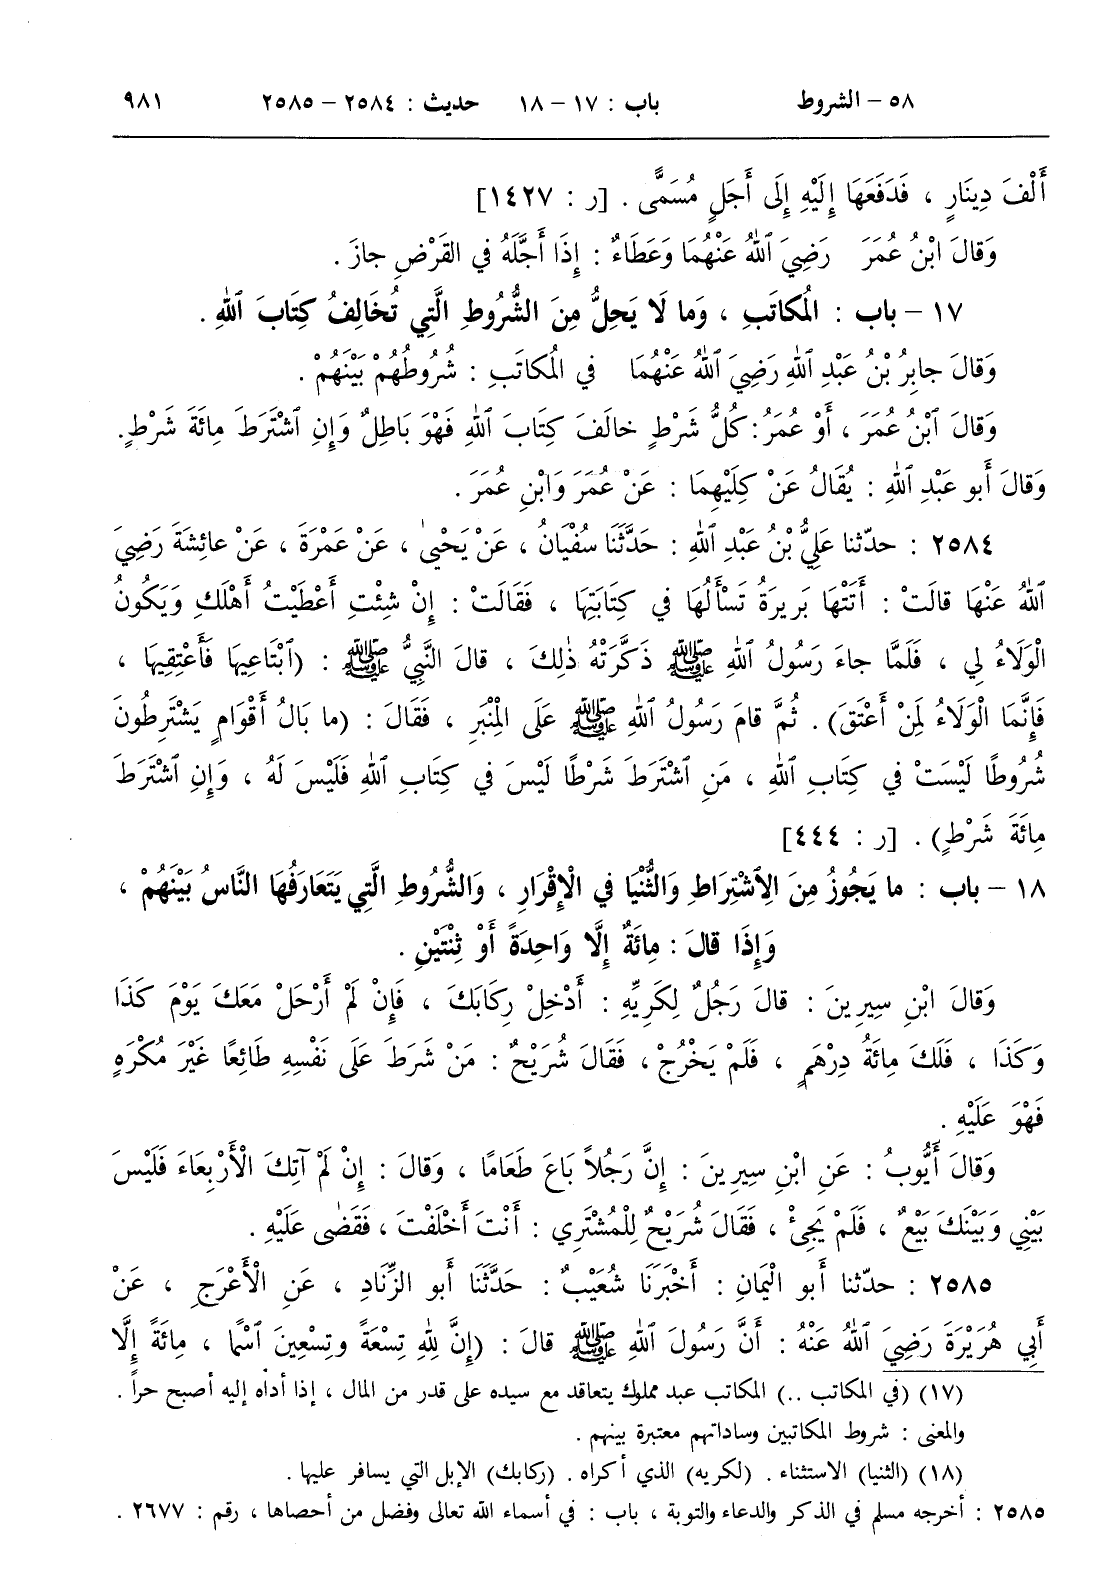 ٥٨ – الشروط باب : ١٧ – ١٨ حديث : ٢٥٨٤ – ٢٥٨٥ ٩٨١
أَلْفَ دِينَارٍ ، فَدَفَعَهَا إِلَيْهِ إِلَى أَجَلٍ مُسَمًّى . [ر : ١٤٢٧]
وَقالَ ابْنُ عُمَرَ رَضِيَ ٱللهُ عَنْهُمَا وَعَطَاءٌ : إِذَا أَجَّلَهُ في القَرْضِ جازَ .
١٧ – باب : الْمُكاتَبِ ، وَما لَا يَحِلُّ مِنَ الشُّرُوطِ الَّتِي تُخَالِفُ كِتَابَ ٱللهِ .
وَقالَ جابِرُ بْنُ عَبْدِ ٱللهِ رَضِيَ ٱللهُ عَنْهُمَا في الْمُكاتَبِ : شُرُوطُهُمْ بَيْنَهُمْ .
وَقالَ ٱبْنُ عُمَرَ ، أَوْ عُمَرُ : كُلُّ شَرْطٍ خالَفَ كِتَابَ ٱللهِ فَهْوَ بَاطِلٌ وَإِنِ ٱشْتَرَطَ مِائَةَ شَرْطٍ .
وَقالَ أَبو عَبْدِ ٱللهِ : يُقَالُ عَنْ كِلَيْهِمَا : عَنْ عُمَرَ وَابْنِ عُمَرَ .
٢٥٨٤ : حدّثنا عَلِيُّ بْنُ عَبْدِ ٱللهِ : حَدَّثَنَا سُفْيَانُ ، عَنْ يَحْيىٰ ، عَنْ عَمْرَةَ ، عَنْ عائِشَةَ رَضِيَ
ٱللهُ عَنْهَا قالَتْ : أَتَتْهَا بَرِيرَةُ تَسْأَلُهَا في كِتَابَتِهَا ، فَقَالَتْ : إِنْ شِئْتِ أَعْطَيْتُ أَهْلَكِ وَيَكُونُ
الْوَلَاءُ لِي ، فَلَمَّا جاءَ رَسُولُ ٱللهِ ﷺ ذَكَّرَتْهُ ذٰلِكَ ، قالَ النَّبِيُّ ﷺ : (ٱبْتَاعِيهَا فَأَعْتِقِيهَا ،
فَإِنَّمَا الْوَلَاءُ لِمَنْ أَعْتَقَ) . ثُمَّ قامَ رَسُولُ ٱللهِ ﷺ عَلَى الْمِنْبَرِ ، فَقَالَ : (ما بَالُ أَقْوَامٍ يَشْتَرِطُونَ
شُرُوطًا لَيْسَتْ في كِتَابِ ٱللهِ ، مَنِ ٱشْتَرَطَ شَرْطًا لَيْسَ في كِتَابِ ٱللهِ فَلَيْسَ لَهُ ، وَإِنِ ٱشْتَرَطَ
مِائَةَ شَرْطٍ) . [ر : ٤٤٤]
١٨ – باب : ما يَجُوزُ مِنَ الِٱشْتِرَاطِ وَالثُّنْيَا في الْإِقْرَارِ ، وَالشُّرُوطِ الَّتِي يَتَعَارَفُهَا النَّاسُ بَيْنَهُمْ ،
وَإِذَا قالَ : مِائَةٌ إِلَّا وَاحِدَةً أَوْ ثِنْتَيْنِ .
وَقالَ ابْنِ سِيرِينَ : قالَ رَجُلٌ لِكَرِيِّهِ : أَدْخِلْ رِكَابَكَ ، فَإِنْ لَمْ أَرْحَلْ مَعَكَ يَوْمَ كَذَا
وَكَذَا ، فَلَكَ مِائَةُ دِرْهَمٍ ، فَلَمْ يَخْرُجْ ، فَقَالَ شُرَيْحٌ : مَنْ شَرَطَ عَلَى نَفْسِهِ طَائِعًا غَيْرَ مُكْرَهٍ
فَهْوَ عَلَيْهِ .
وَقالَ أَيُّوبُ : عَنِ ابْنِ سِيرِينَ : إِنَّ رَجُلاً بَاعَ طَعَامًا ، وَقالَ : إِنْ لَمْ آتِكَ الْأَرْبِعَاءَ فَلَيْسَ
بَيْنِي وَبَيْنَكَ بَيْعٌ ، فَلَمْ يَجِئْ ، فَقَالَ شُرَيْحٌ لِلْمُشْتَرِي : أَنْتَ أَخْلَفْتَ ، فَقَضٰى عَلَيْهِ .
٢٥٨٥ : حدّثنا أَبو الْيَمَانِ : أَخْبَرَنَا شُعَيْبٌ : حَدَّثَنَا أَبو الزِّنَادِ ، عَنِ الْأَعْرَجِ ، عَنْ
أَبِي هُرَيْرَةَ رَضِيَ ٱللهُ عَنْهُ : أَنَّ رَسُولَ ٱللهِ ﷺ قالَ : (إِنَّ لِلّٰهِ تِسْعَةً وتِسْعِينَ ٱسْمًا ، مِائَةً إِلَّا
(١٧) (في المكاتب ..) المكاتب عبد مملوك يتعاقد مع سيده على قدر من المال ، إذا أداه إليه أصبح حراً .
والمعنى : شروط المكاتبين وساداتهم معتبرة بينهم .
(١٨) (الثنيا) الاستثناء . (لكريه) الذي أكراه . (ركابك) الإبل التي يسافر عليها .
٢٥٨٥ : أخرجه مسلم في الذكر والدعاء والتوبة ، باب : في أسماء الله تعالى وفضل من أحصاها ، رقم : ٢٦٧٧ .